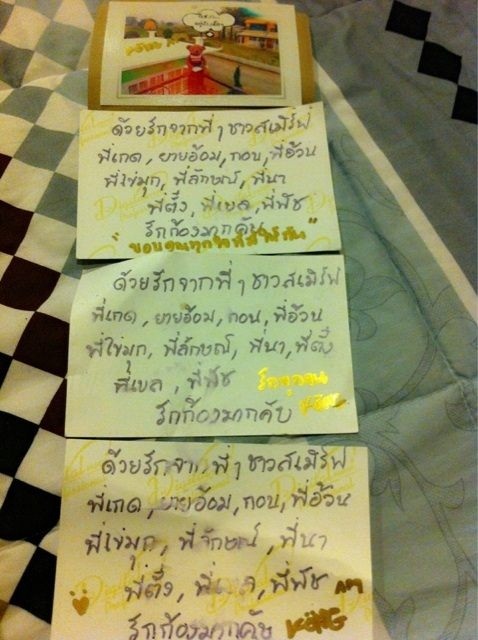 ด้วยรักจากพี่ๆชาวสเมิร์ฟ
พี่เกด, ยายอ้อม, กอน, พี่อ้วน
พี่ไข่มุก, พี่ลักษณ์, พี่นา
พี่ตั๊ง, พี่เบล, พี่พัช
รักก้องมากคับ
"ขอบคุณทุกใจที่มีให้กัน"
ด้วยรักจากพี่ๆชาวสเมิร์ฟ
พี่เกด, ยายอ้อม, กอน, พี่อ้วน
พี่ไข่มุก, พี่ลักษณ์, พี่นา, พี่ตั๊ง
พี่เบล, พี่พัช รักทุกคน
รักก้องมากคับ
ด้วยรักจากพี่ๆชาวสเมิร์ฟ
พี่เกด, ยายอ้อม, กอน, พี่อ้วน
พี่ไข่มุก, พี่ลักษณ์, พี่นา
พี่ตั๊ง, พี่เบล, พี่พัช
รักก้องมากคับ